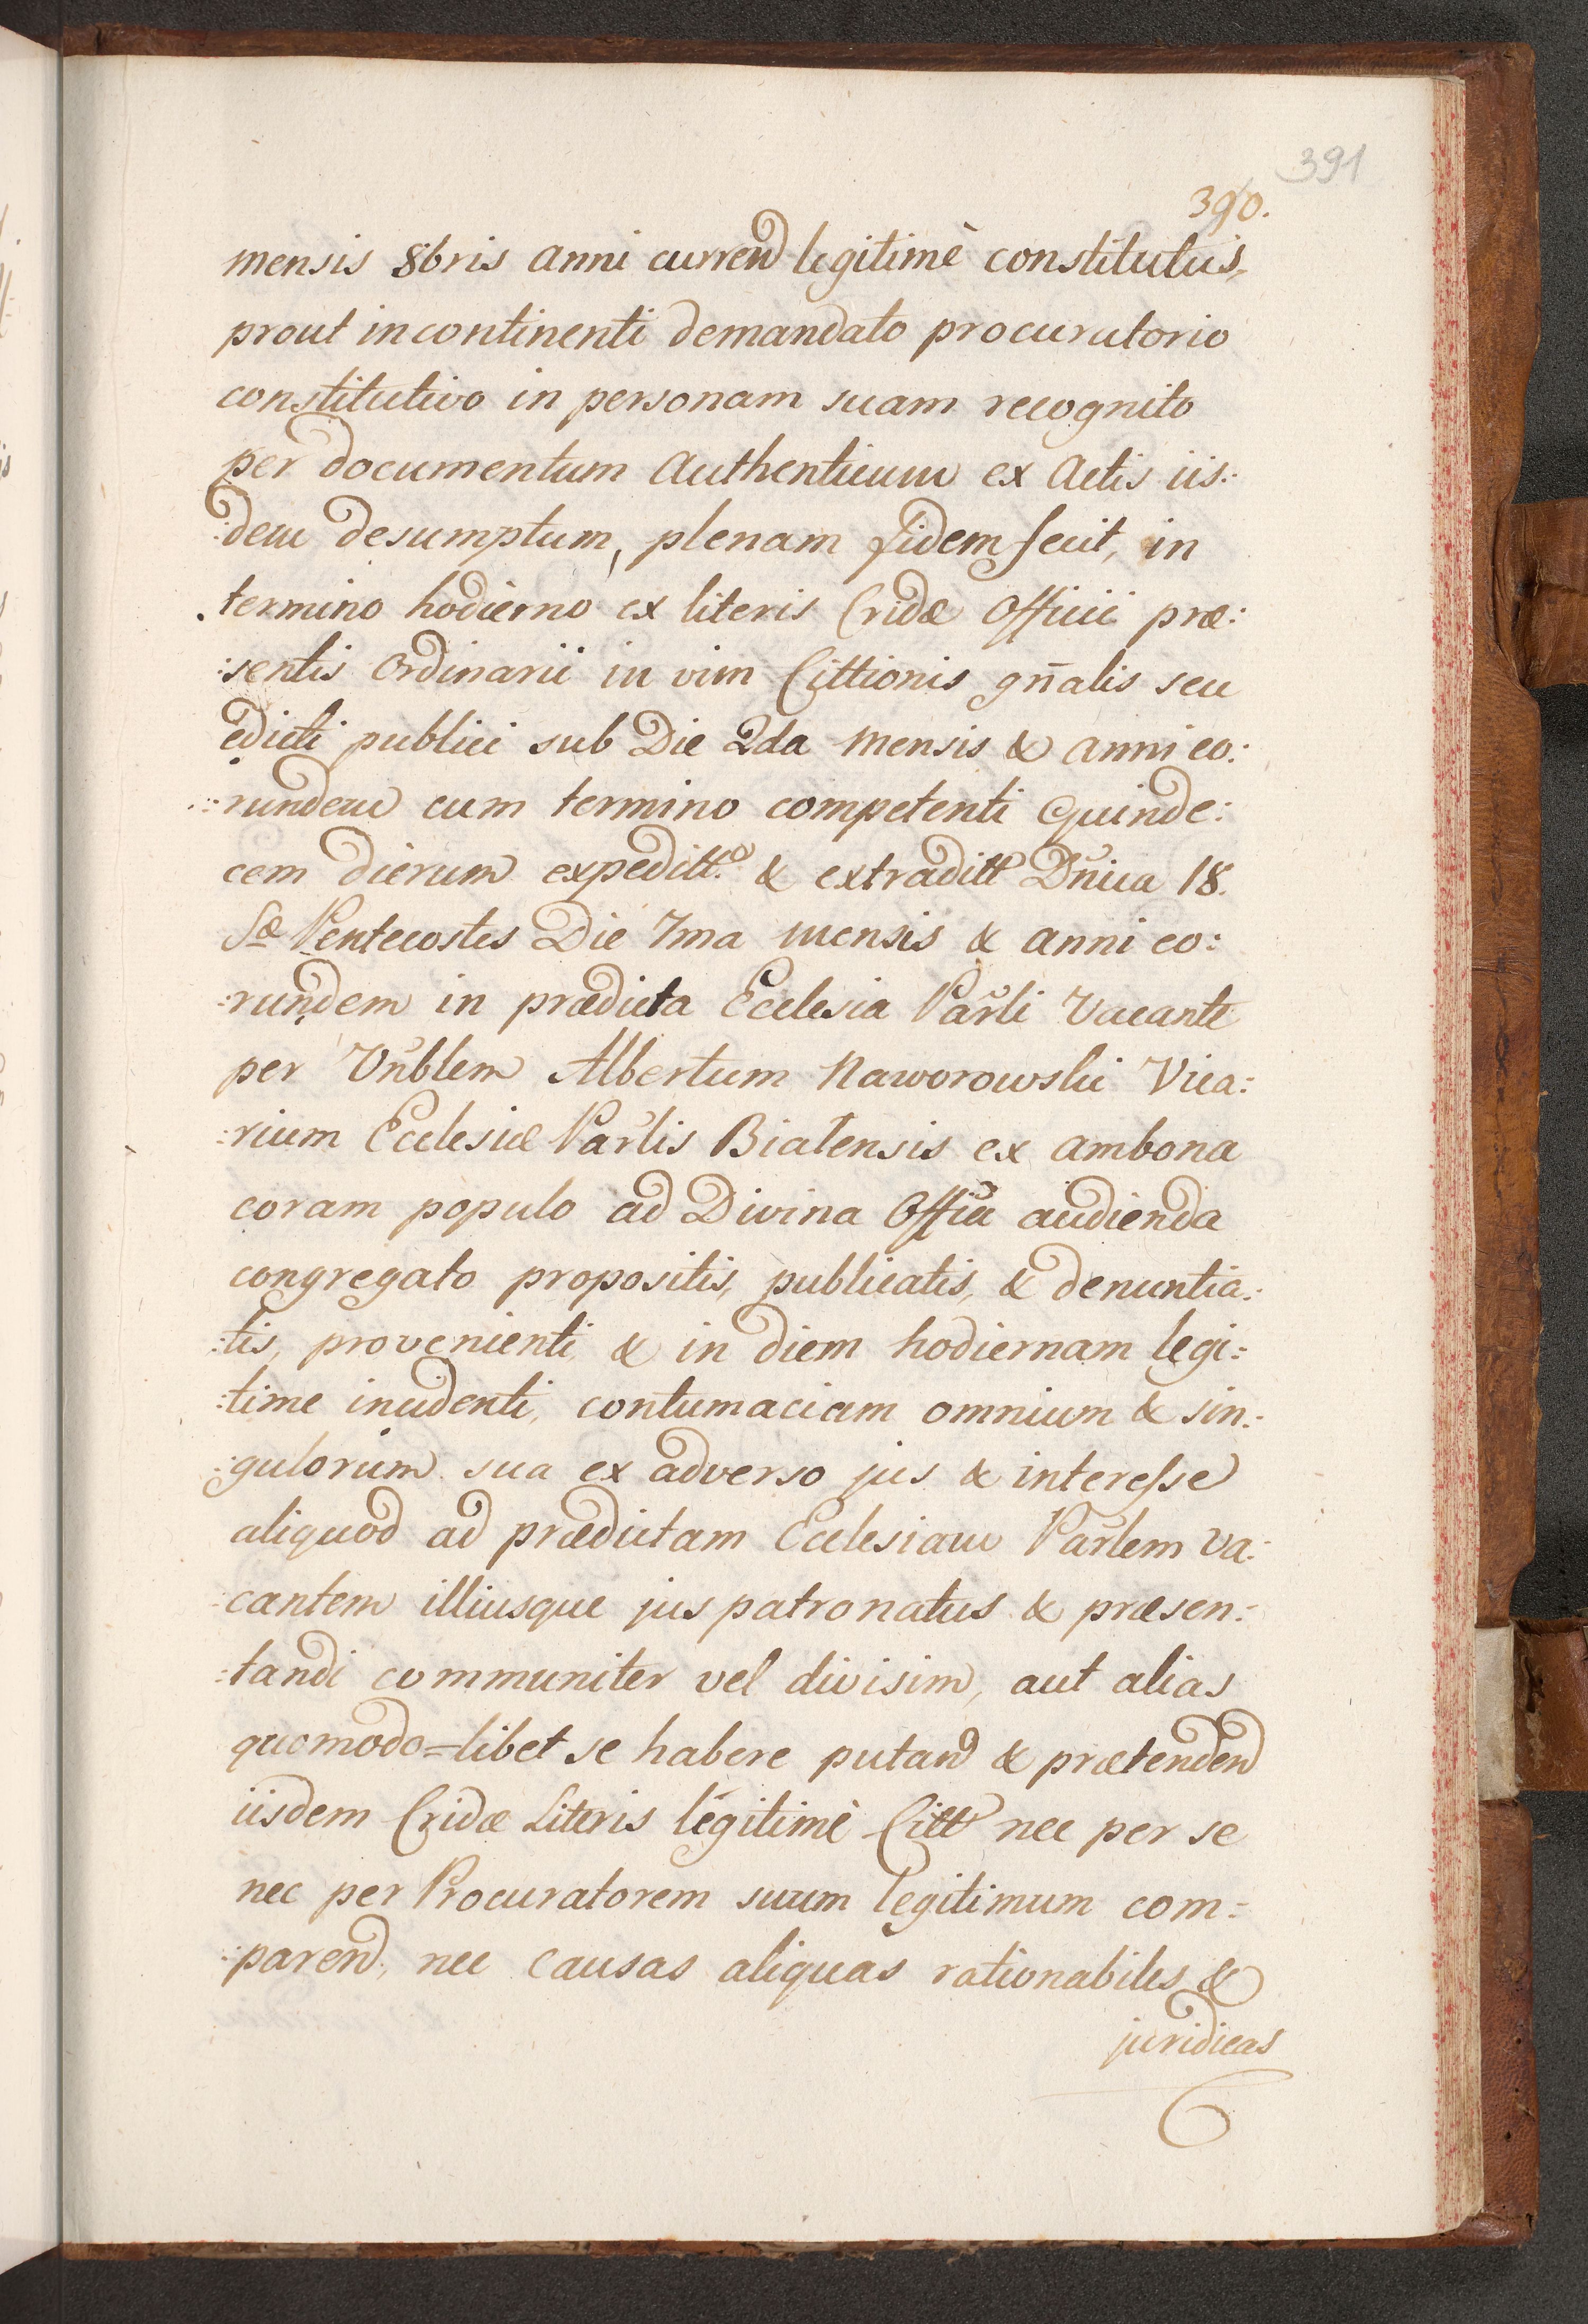 391
390.
mensis 8bris anni curren legitimè constitutus,
prout incontinenti demandato procuratorio
constitutivo in personam suam recognito
per documentum Authenticum ex Actis iis:
:dem desumptum, plenam fidem fecit, in
termino hodierno ex literis Cridæ Officii præ:
:sentis Ordinarii in vim Cittionis gn̄alis seu
edicti publici sub Die 2da mensis & anni eo:
:rundem cum termino competenti Quinde:
cem dierum expeditt.o & extraditt Dn̄ica 18.
S.æ Pentecostes Die 7ma mensis & anni eo:
:rundem in prædicta Ecclesia Parli Vacante
per Vn̄blem Albertum Naworowski Vica:
:rium Ecclesiæ Parlis Bialensis ex ambona
coram populo ad Divina Offia audienda
congregato propositis, publicatis, & denuntia:
:tis, provenienti & in diem hodiernam legi:
:time incidenti, contumaciam omnium & sin:
:gulorum sua ex adverso jus & interesse
aliquod ad prædictam Ecclesiam Parlem va:
:cantem illiusque jus patronatus & præsen:
:tandi communiter vel divisim, aut alias
quomodo=libet se habere putan & prætenden
iisdem Cridæ Literis legitimè Citt nec per se
nec per Procuratorem suum legitimum com:
:paren, nec causas aliquas rationabiles &
juridicas